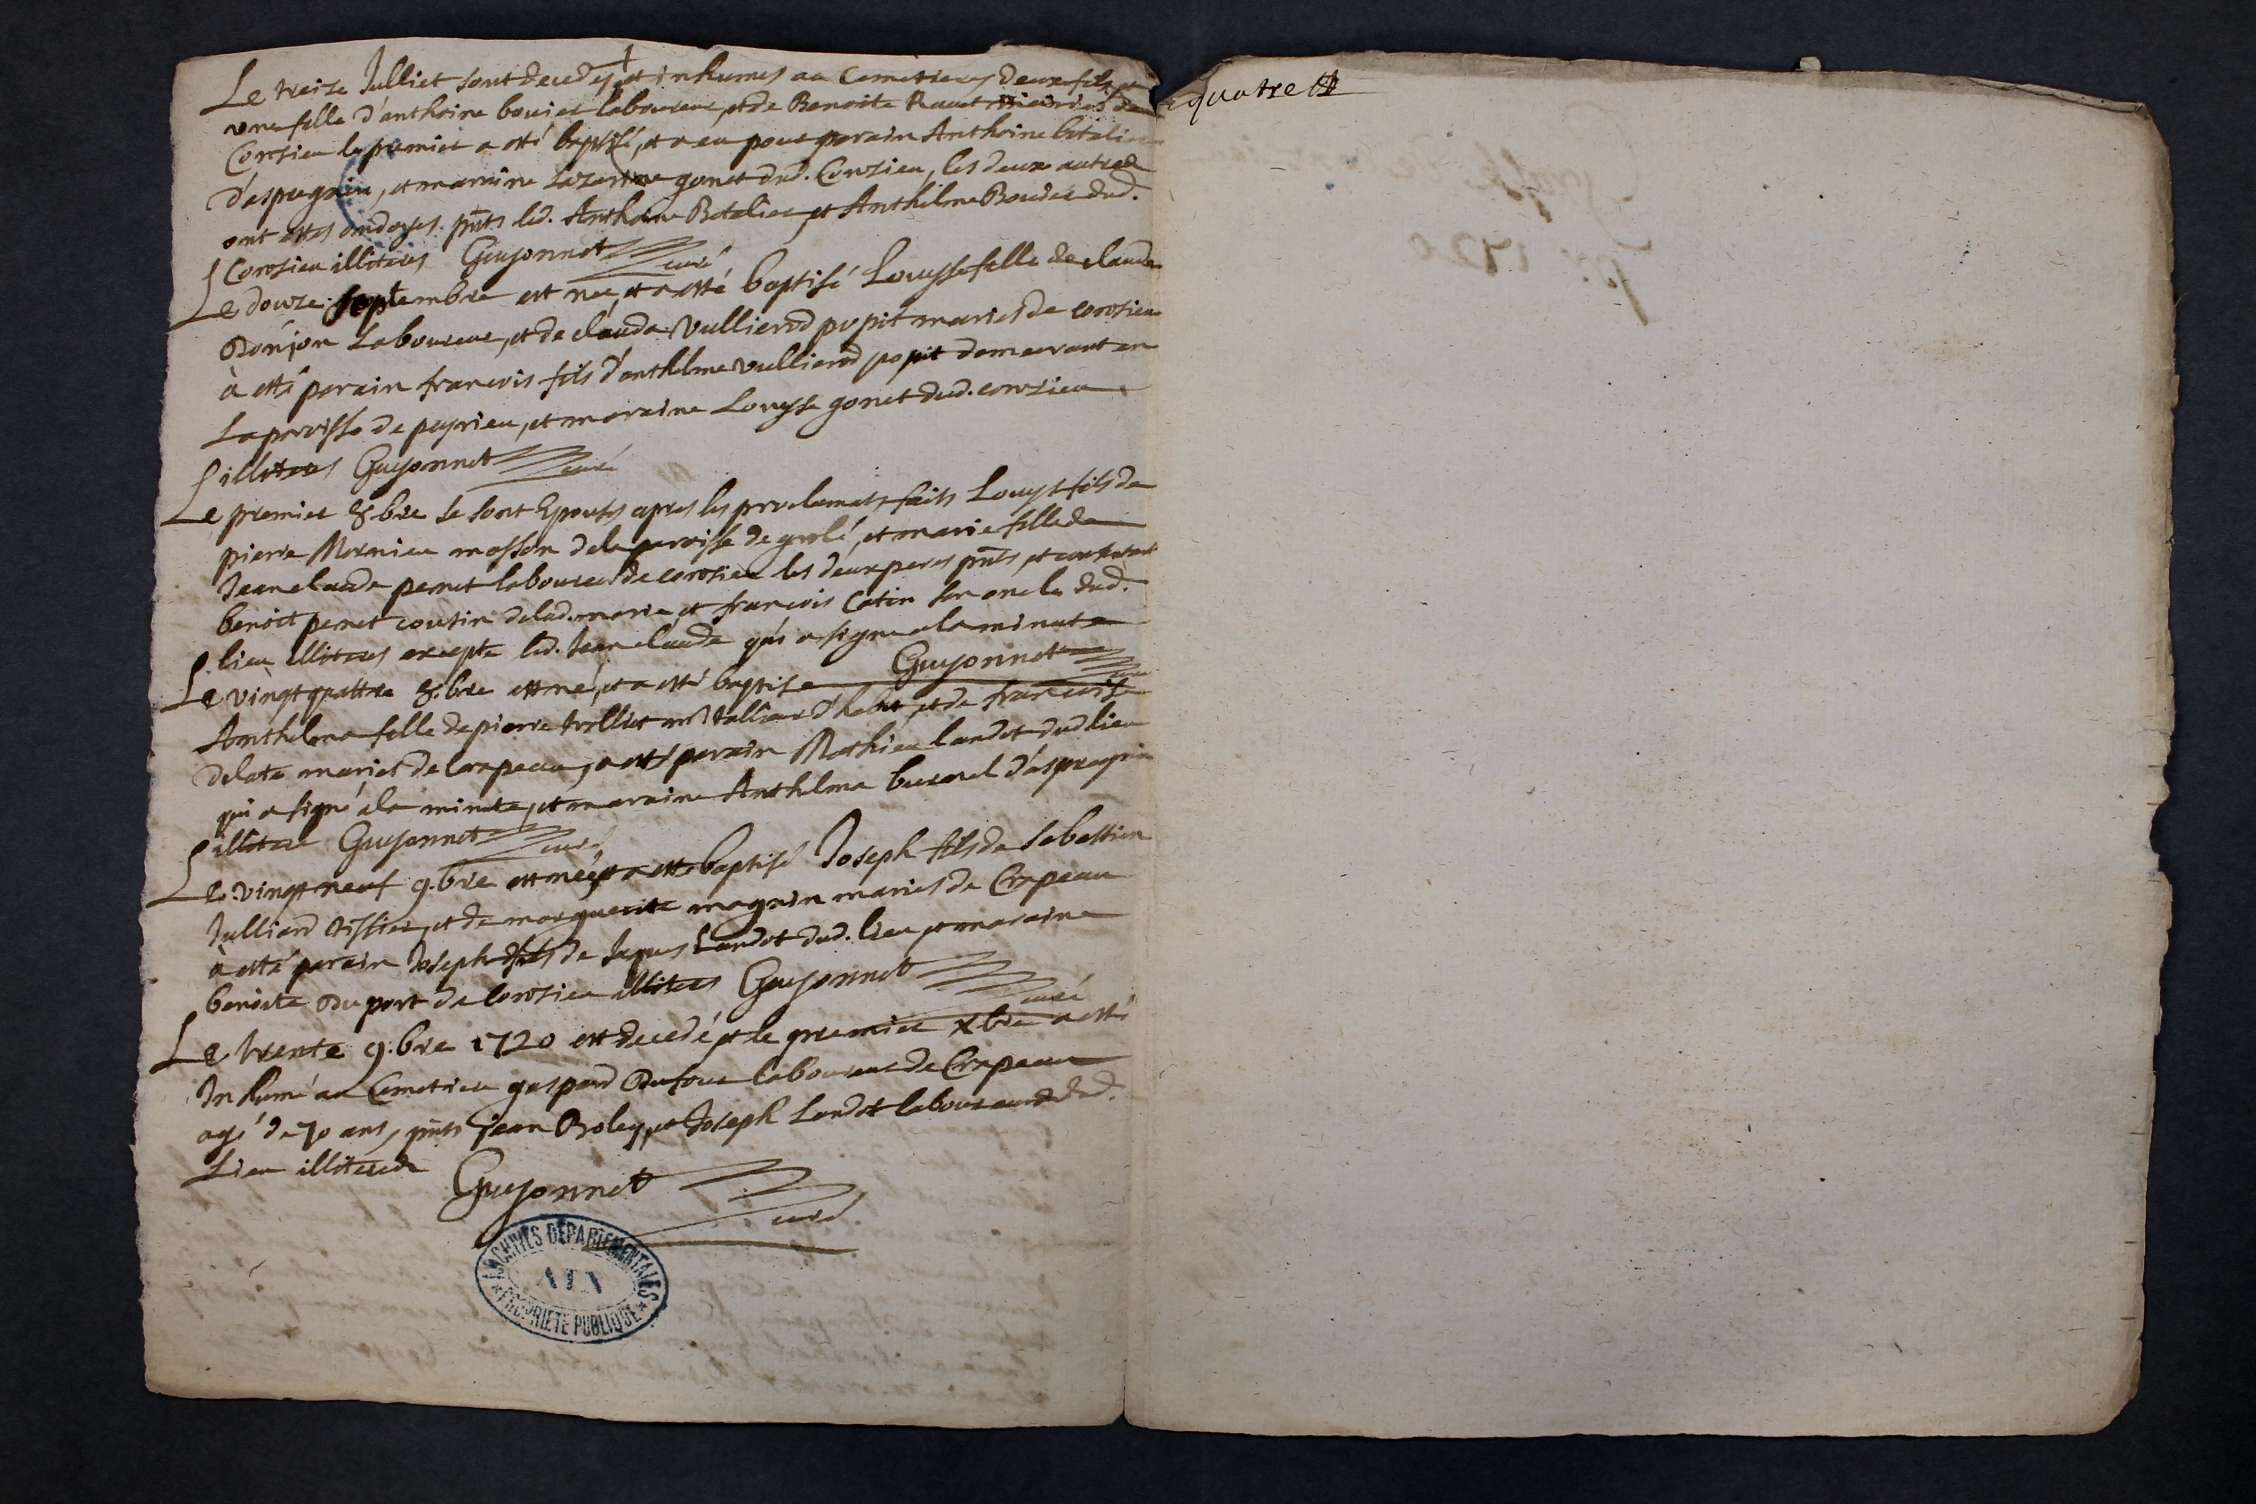 Le treize Julliet sont decedes, et inhumes au Cemetiere deux fils, et
une fille d'anthoine bouier laboureur, et de Benoite Ravet mariés de
Conzieu le premier a esté baptisé, et a eu pour parain Anthoine betalier
d'aspregnieu, et maraine gonet dud. Conzieu, les deux autres
ont estes ondoyes. pnts led. Anthoine Betalier et Anthelme Bouier dud.
Conzieu illiteres Guyonnet curé
Le douze septembre est née, et a esté baptisé Louysse fille de claude
Donjon Laboureur, et de clauda Vullierod popit mariés de conzieu
à esté parain francois fils d'anthelme vullierod popit demeurant en
La paroisse de peyrieu, et maraine Louysse gonet dud. conzieu
illiteres Guyonnet curé
Le premier 8.bre se sont Epousés apres les proclamats faits Louys fils de
pierre Mornieu masson de la paroisse de grolé, et marie fille de
Jean claude pernet laboureur de conzieu les deux peres pnts, et
benoit pernet cousin de lad. marie et francois Catin son oncle dud.
lieu illiteres excepte led. Jean claude qui a signe a la minute
Guyonnet
Le vingt quattre 8.bre est né, et a esté baptise
Anthelma fille de pierre trolliet mr tallieur d'habit, et de francoise
delate mariés de Crapeau, a esté parain Mathieu landot dud lieu
qui a signé a la minute, et maraine Anthelma d'aspregnieu
illitere Guyonnet curé
Le vingt neuf 9.bre est née, et a esté baptisé Joseph fils de sebastien
Julliard tissier, et de marguerite magnin mariés de Crapeau
à esté parain Joseph fils de Jaques Landot dud. lieu et maraine
benoite Duport de Conzieu illiteres Guyonnet
curé
Le trente 9.bre 1720 est decedé, et le premier xbre a esté
Inhumé au Cemetiere gaspard Dufour laboureur de Crapeau
agé de 70 ans, pnts jean Boley, et Joseph Landot laboureurs dud.
Lieu illiteres
Guyonnet
curé
ARCHIVES DÉPARTEMENTALES
AIN
PROPRIÉTÉ PUBLIQUE
quatre
1720